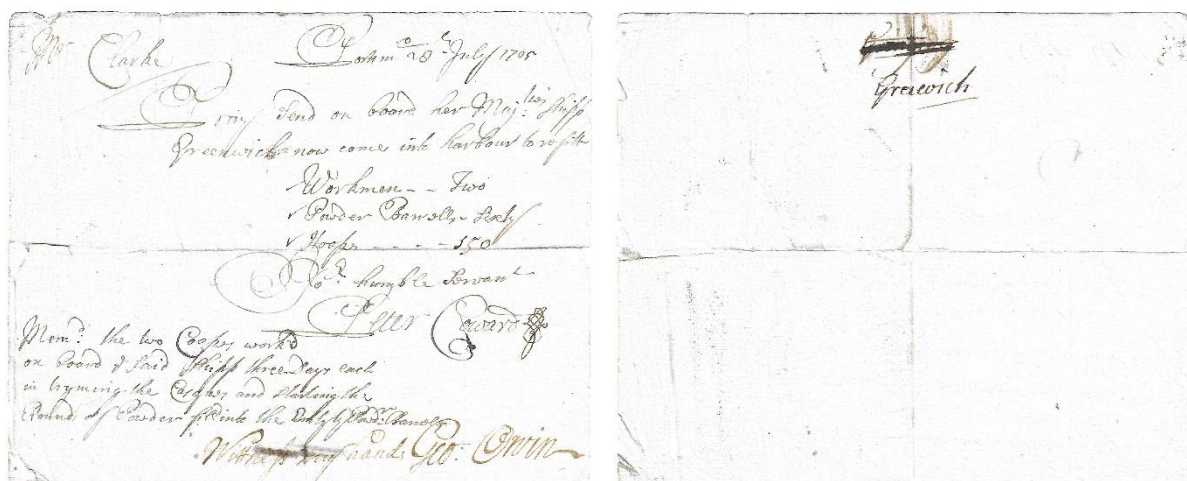 Mr Clarke
Portsmo 28th July 1705
Pray Send on board her Majties Shipp
Greenwich now comes into harbour to refitt
Workmen - - Two
Powder Barrells - Sixty
Hoops - - - - 150
Yor humble Servant
Peter Coward
Memd. the two Coopers workd
on board ye said Shipp three days each
in tryming the Casques and starting the
Pound of Powder into the Empty Powdr. Barrells
Wittness my hand Geo: Orvin
Greenwich